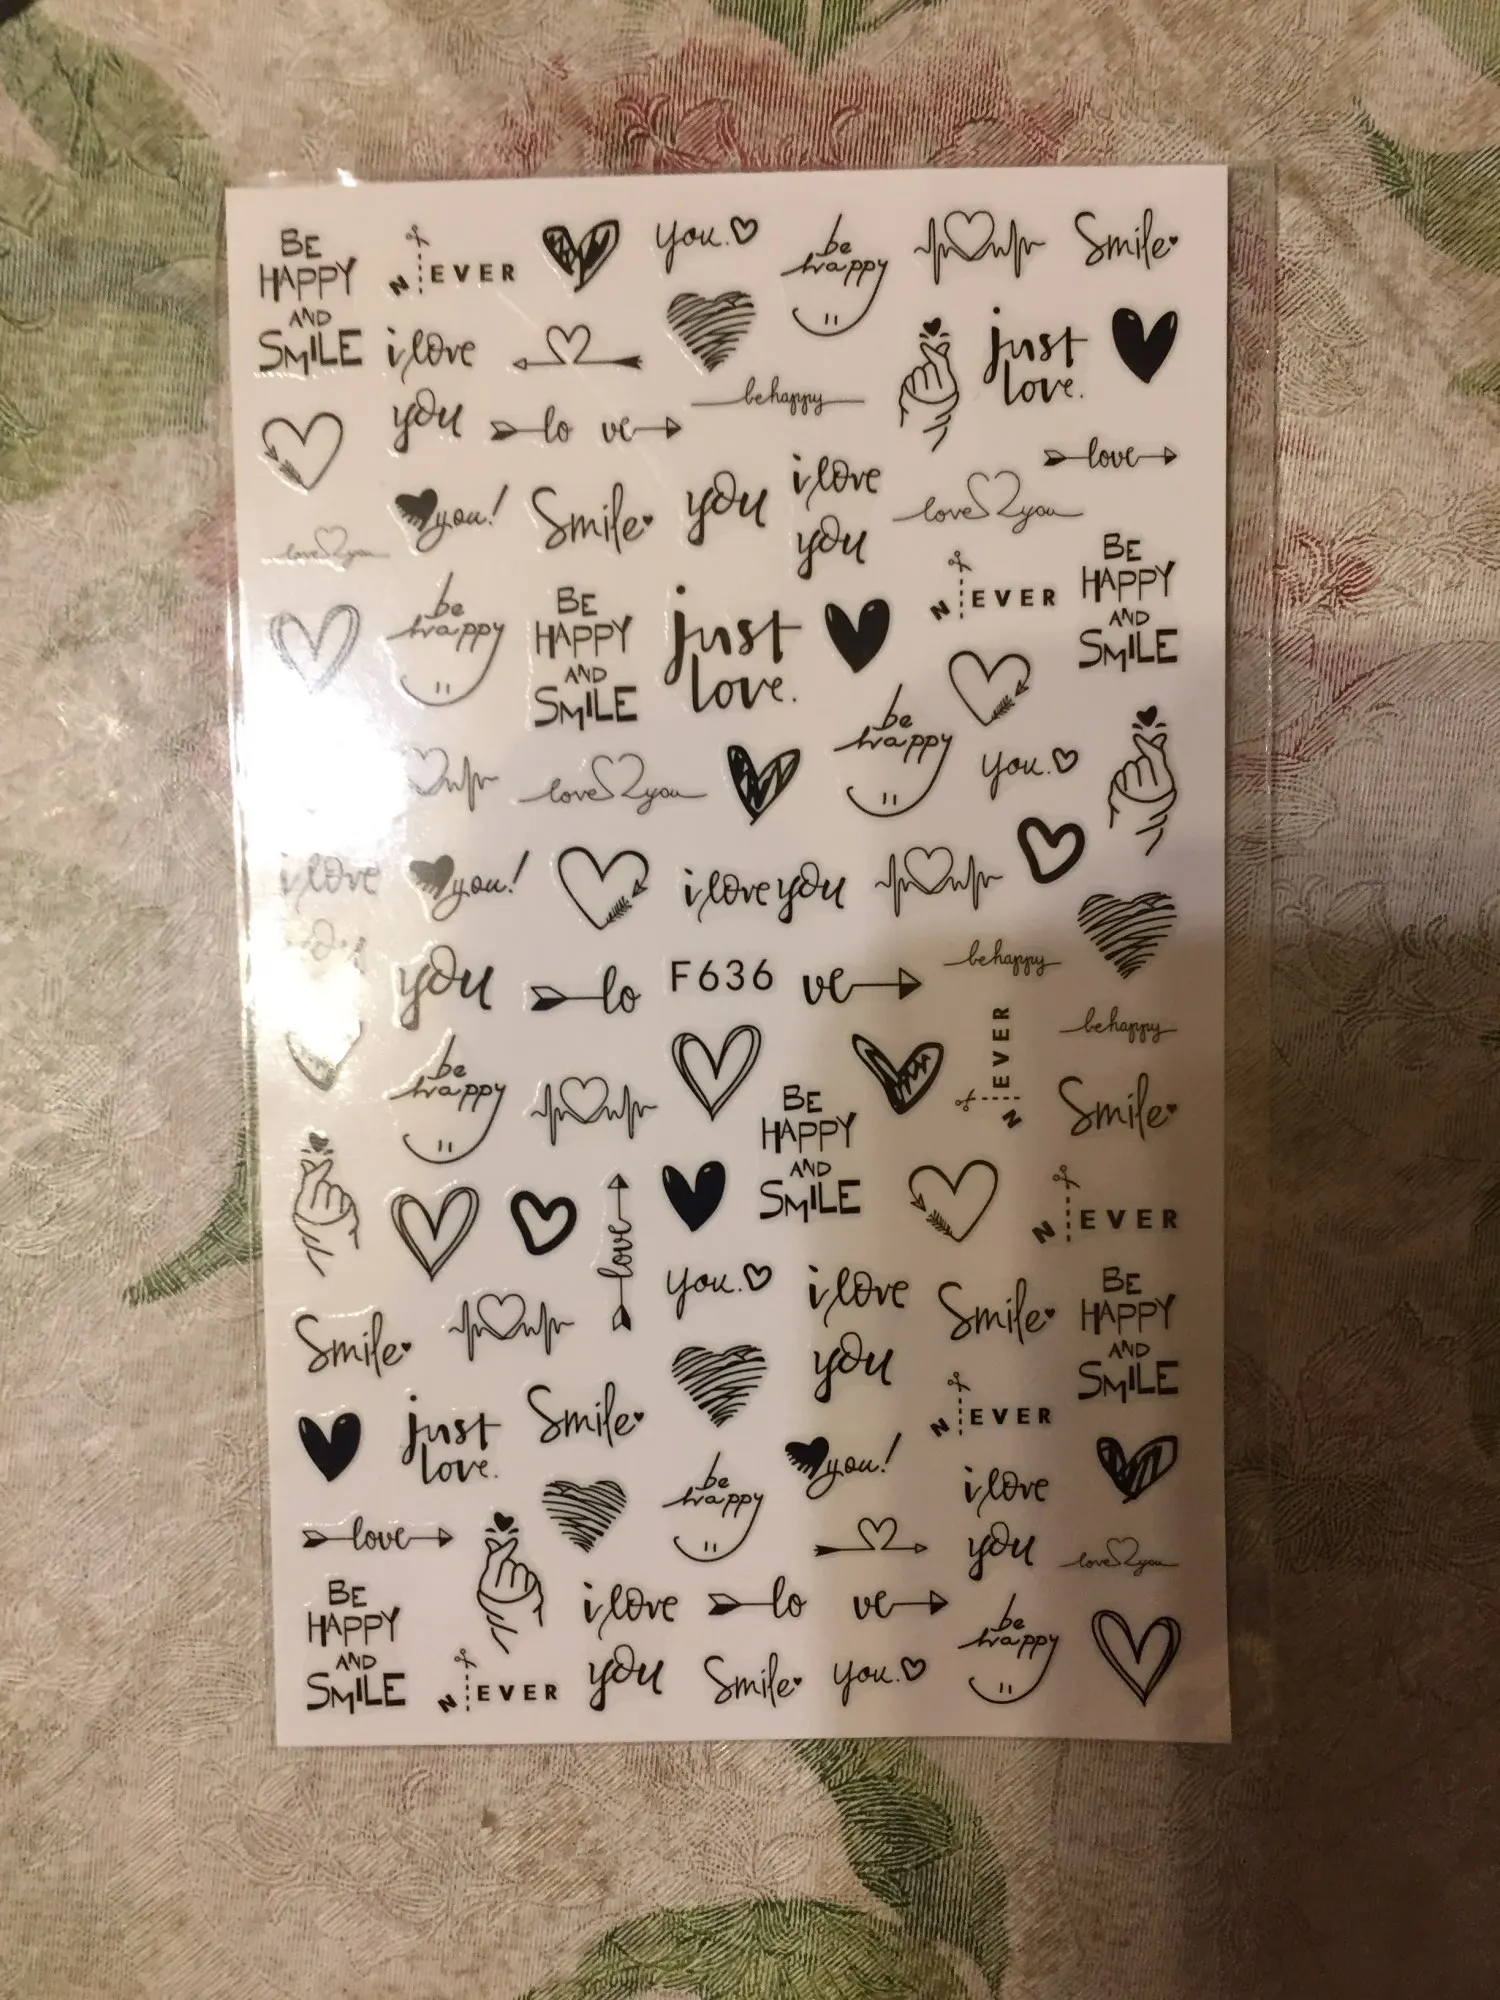 BE
HAPPY
AND
SMILE
N EVER
you.
be
happy
Smile
i love
you
just
love.
be happy
lo ve
love
you!
Smile
you
i love
you
love you
love you
BE
HAPPY
AND
SMILE
N EVER
be
happy
BE
HAPPY
AND
SMILE
just
love.
be
happy
you.
love you
i love
you!
i love you
you
lo
F636
ve
be happy
be happy
N EVER
be
happy
BE
HAPPY
AND
SMILE
Smile
N EVER
love
you.
i love
you
Smile
BE
HAPPY
AND
SMILE
Smile
just
love.
Smile
N EVER
you!
be
happy
i love
you
love
love you
BE
HAPPY
AND
SMILE
N EVER
i love
you
lo ve
Smile
you.
be
happy